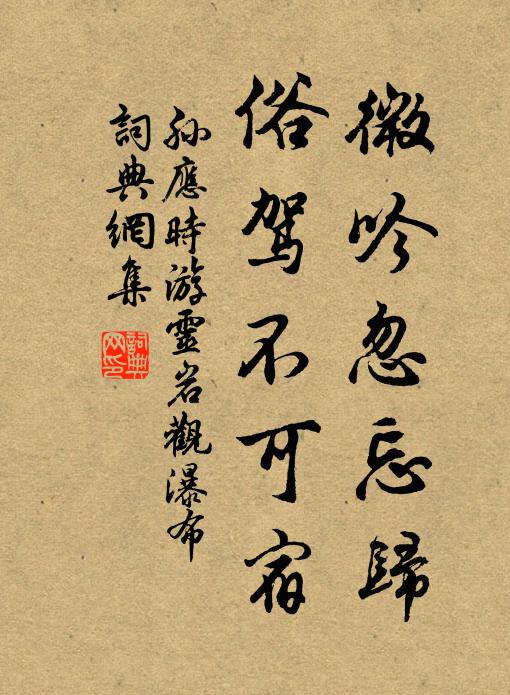 微吟忽忘歸
俗駕不可宿
孫應時游靈岩觀瀑布
詞典網集
詞典網印